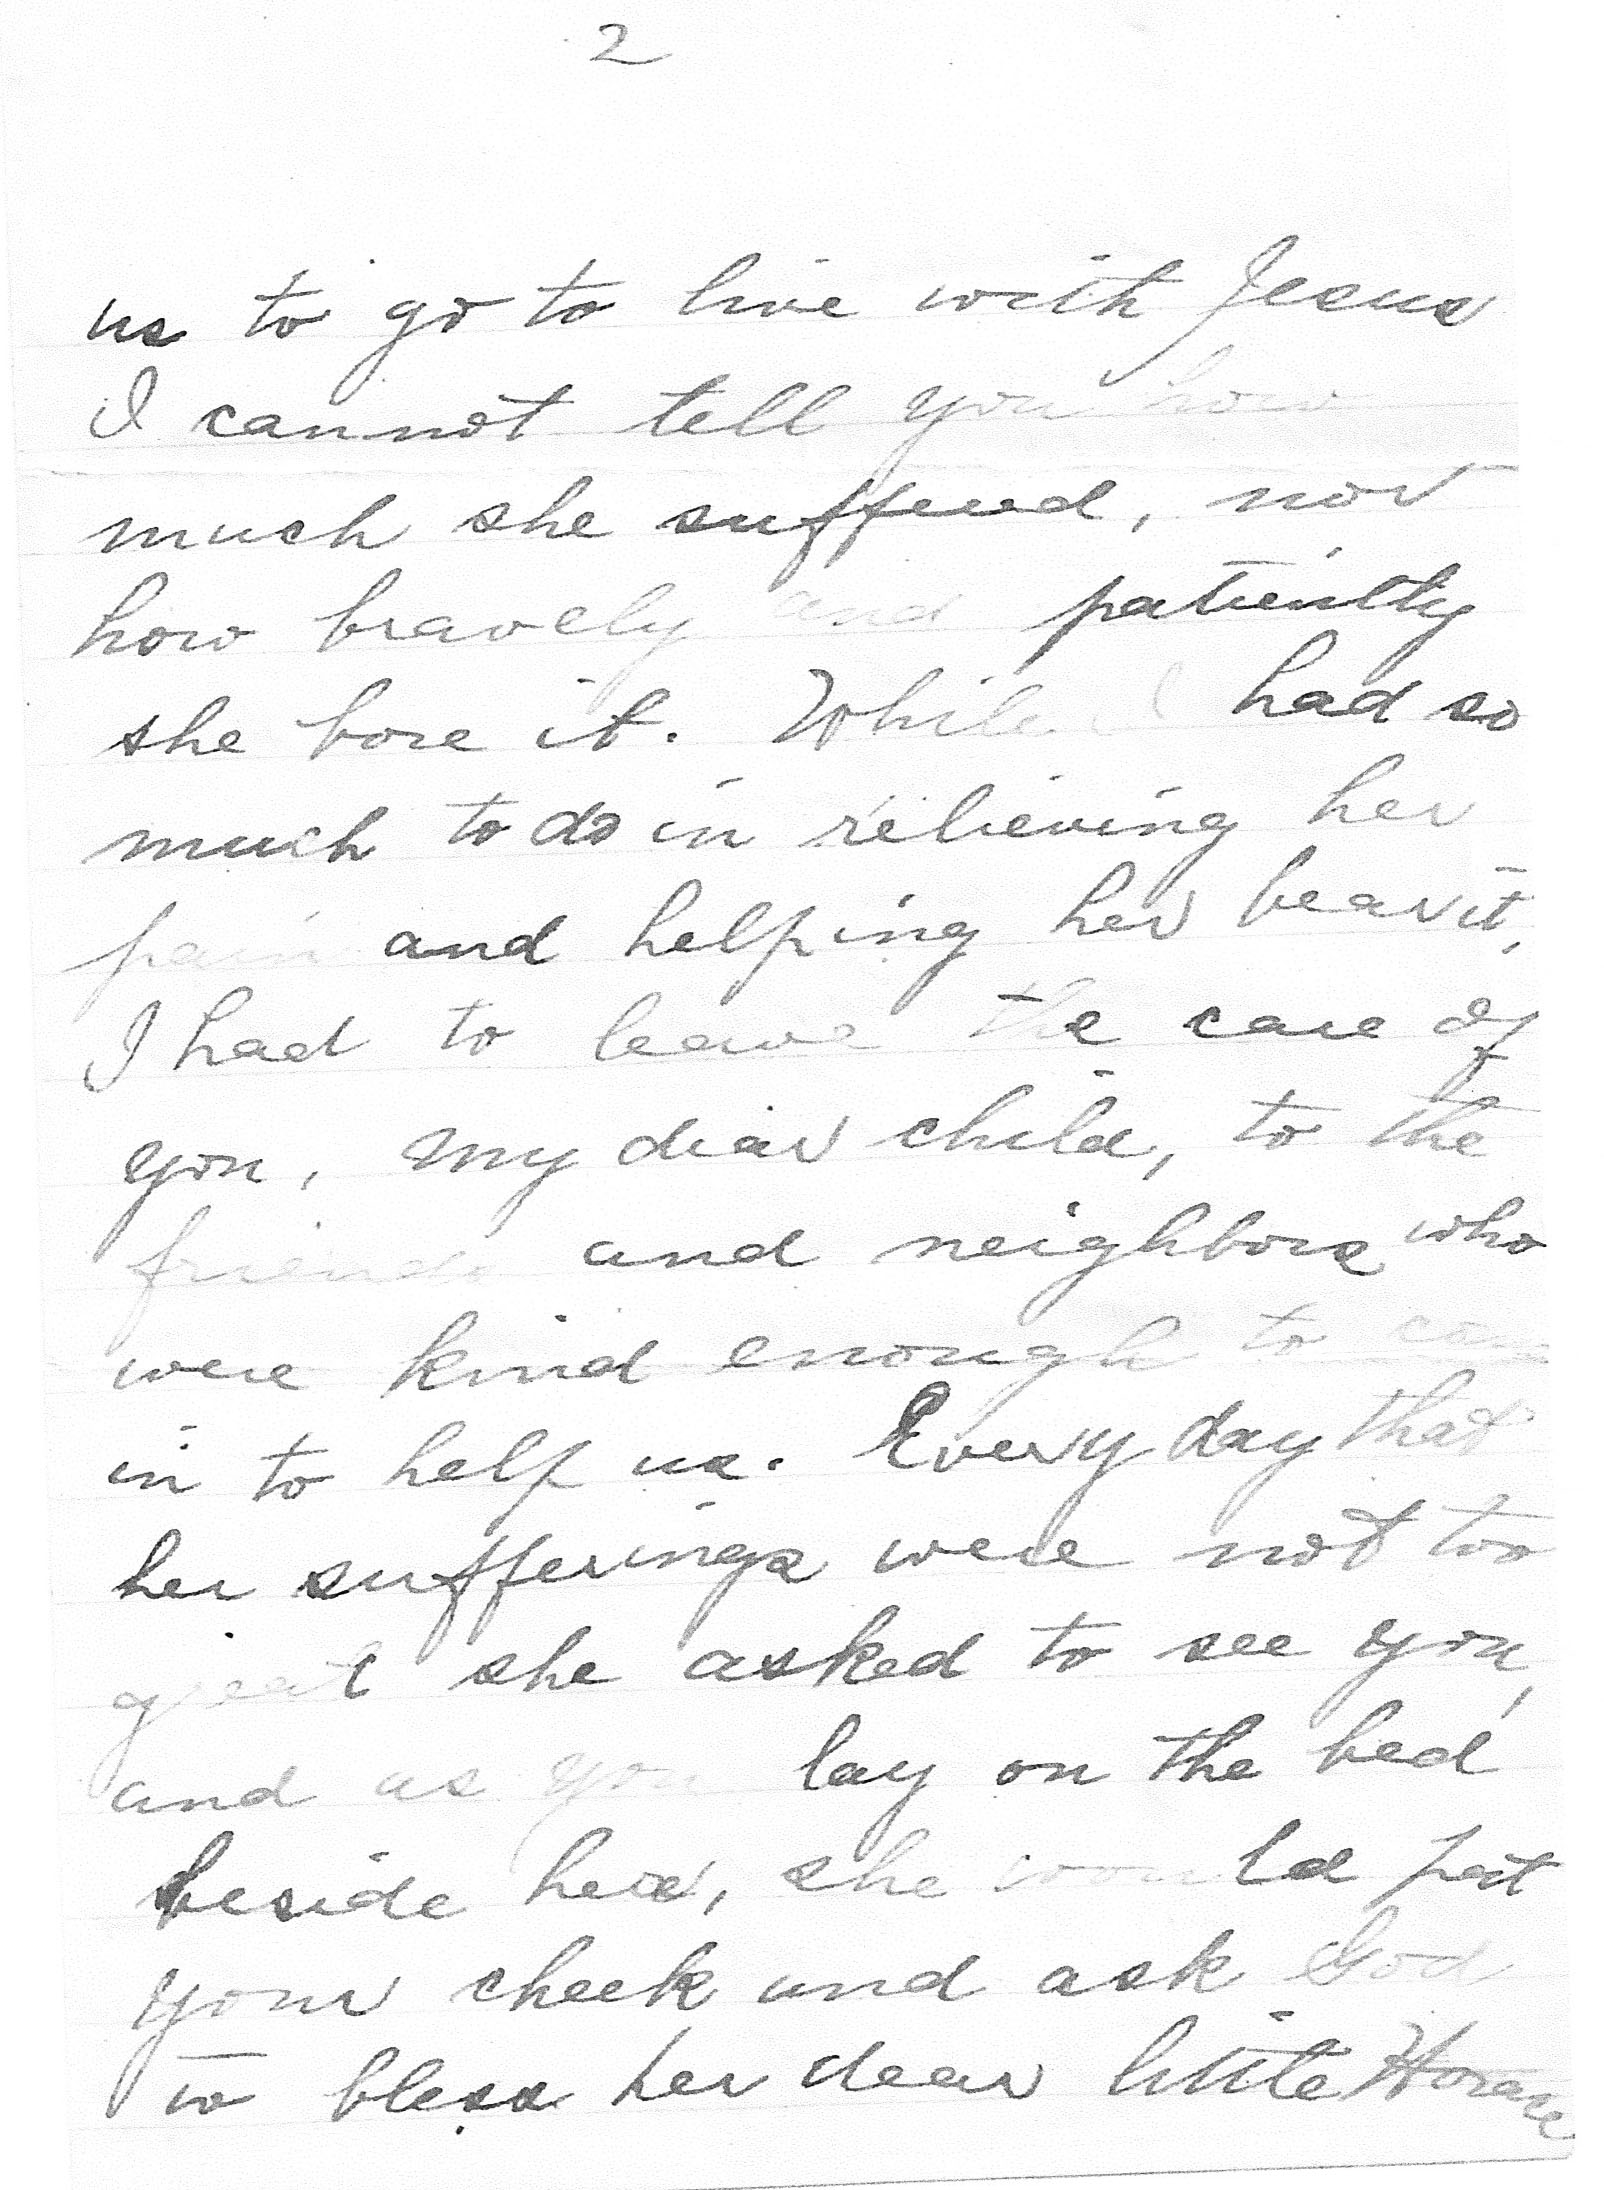 2
us to go to live with Jesus
I cannot tell you how
much she suffered, nor
how bravely and patiently
she bore it. While I had so
much to do in relieving her
pain and helping her bear it,
I had to leave the care of
you, my dear child, to the
friends and neighbors who
were kind enough to come
in to help us. Every day that
her sufferings were not too
great she asked to see you,
and as you lay on the bed
beside her, she would pat
your cheek and ask God
to bless her dear little Horace